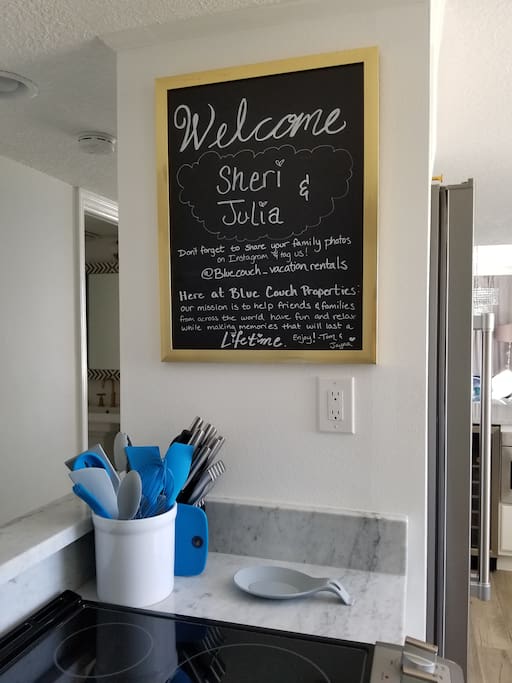 Welcome
Sheri &
Julia
Don't forget to share your family photos
on Instagram & tag us!
@Bluecouch_vacation_rentals
Here at Blue Couch Properties:
our mission is to help friends & families
from across the world have fun and relax
while making memories that will last a
Lifetime. Enjoy! -Tom &
Jayna